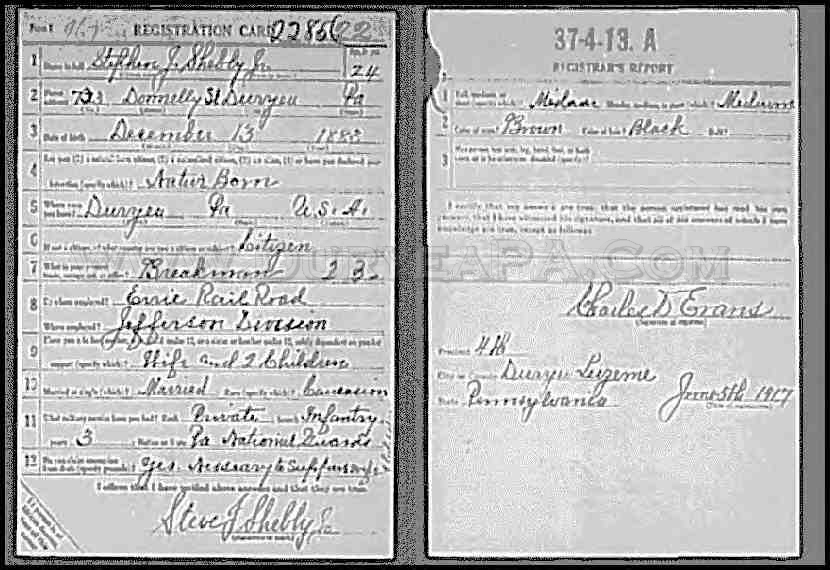 Form 1 REGISTRATION CARD 2286 22
1 Name in full Stephen J. Shebby Jr. Age, in yrs. 24
2 Home address 733 Donnelly St Duryea Pa
3 Date of birth December 13
4 Are you (1) a natural born citizen, (2) a naturalized citizen, (3) an alien, (4) or have you declared your
intention (specify which)? Natur Born
5 Where were you born? Duryea Pa U.S.A.
6 If not a citizen, of what country are you a citizen or subject? Citizen
7 What is your present trade, occupation, or office? Breakman 23
8 By whom employed? Errie Rail Road
Where employed? Jefferson Division
9 Have you a father, mother, wife, child under 12, or a sister or brother under 12, solely dependent on you for
support (specify which)? Wife and 2 Children
10 Married or single (which)? Married Race (specify which)? Caucasion
11 What military service have you had? Rank Private branch Infantry
years 3 Nation or State Pa National Guards
12 Do you claim exemption from draft (specify grounds)? Yes. Nessary to Support Wife
I affirm that I have verified above answers and that they are true.
Steve J Shebby Jr
37-4-13. A
REGISTRAR'S REPORT
1 Tall, medium, or short (specify which)? Slender, medium, or stout (which)? Medium
2 Color of eyes? Brown Color of hair? Black Bald?
3 Has person lost arm, leg, hand, foot, or both eyes, or is he otherwise disabled (specify)?
I certify that my answers are true, that the person registered has read his own
answers, that I have witnessed his signature, and that all of his answers of which I have
knowledge are true, except as follows:
www.DuryeaPA.com
Charles D Evans
(Signature of registrar)
Precinct 4th
City or County Duryea Luzerne
State Pennsylvania June 5th 1917
(Date of registration)